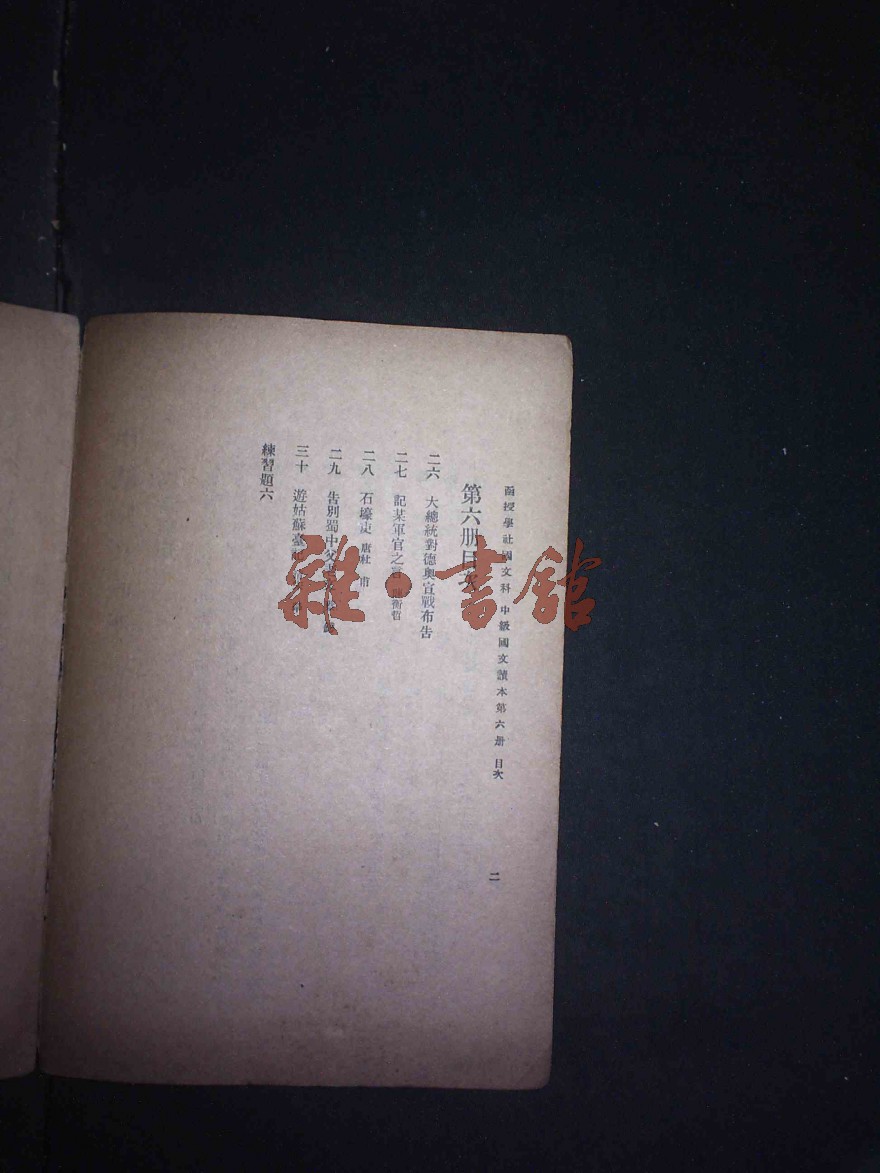 函授學社國文科 中級國文讀本第六册 目次 二
第六册目次
二六 大總統對德奧宣戰布告
二七 記某軍官之言 陳衡哲
二八 石壕吏 唐杜甫
二九 告別蜀中父老
三十 遊姑蘇臺記
練習題六
雜·書館